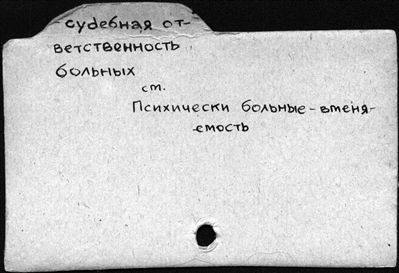 -судебная от-
ветственность
больных
ст.
Психически больные-вменя-
емость